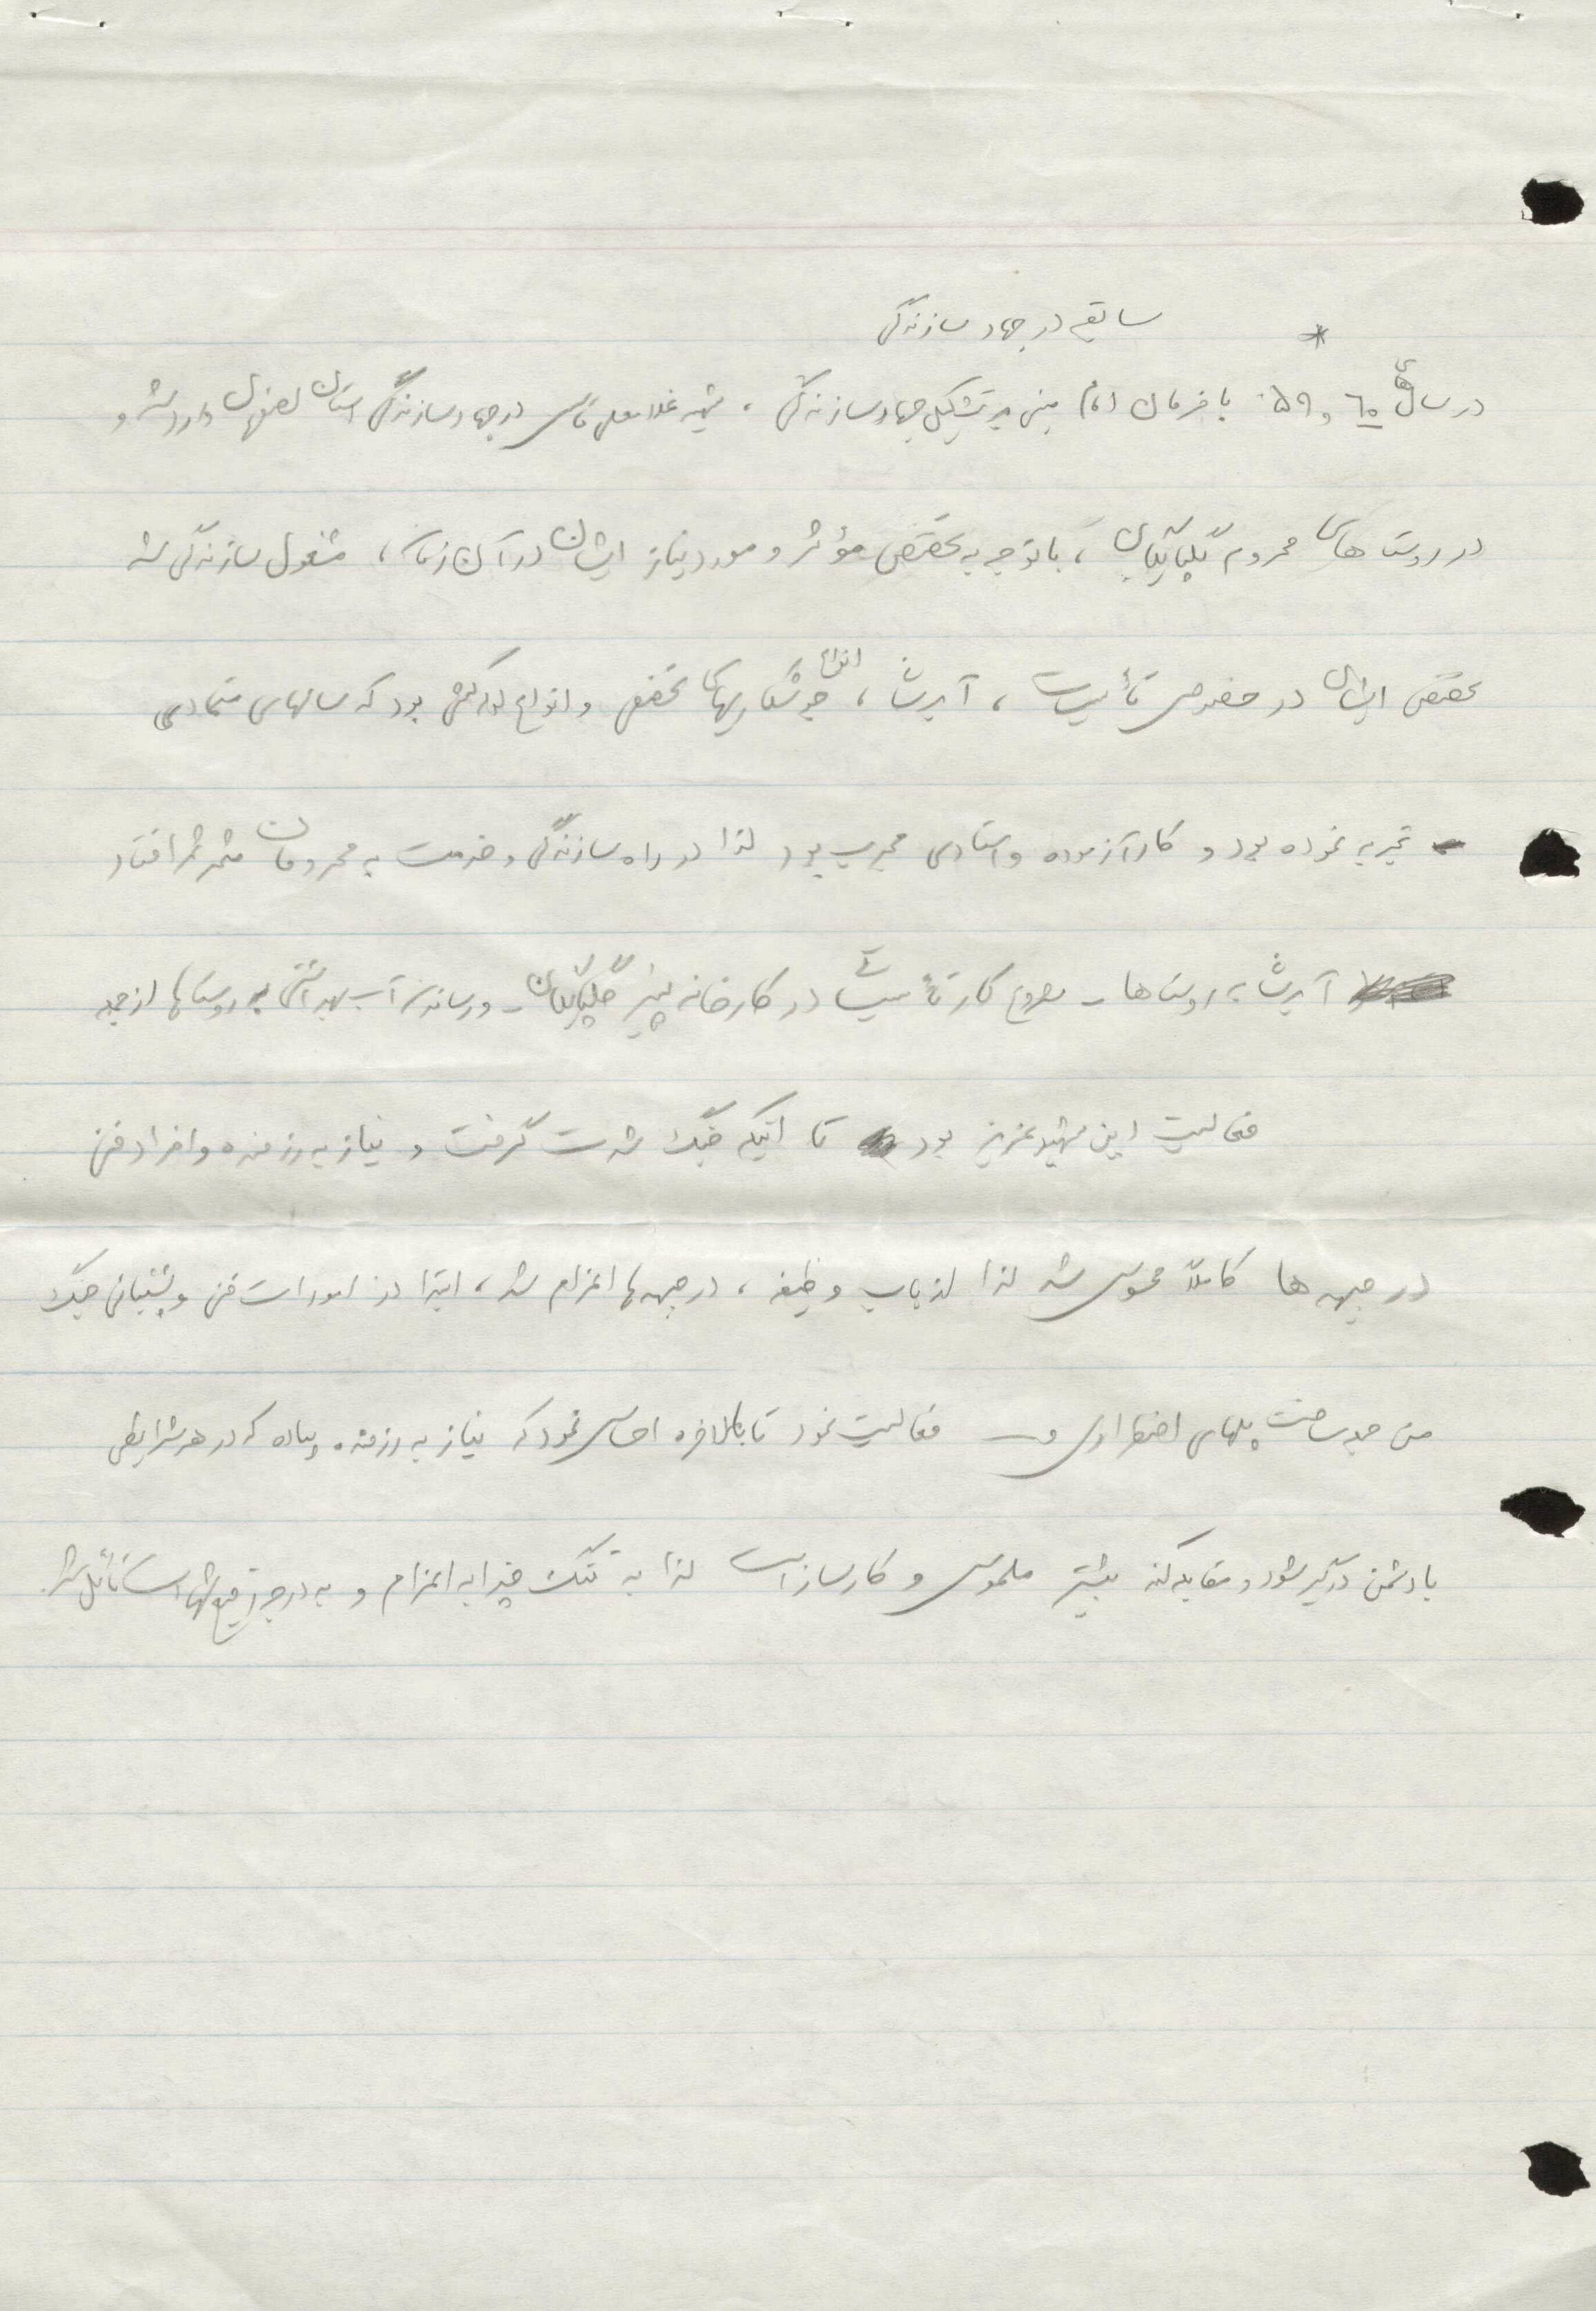 سابقه در جهاد سازندگی
*
در سالهای ۶۰ و ۵۹ با فرمان امام مبنی بر تشکیل جهاد سازندگی ، شهید غلامعلی در جهاد سازندگی استان اصفهان وارد شد و
در روستاهای محروم گلپایگان ، با توجه به تخصص مؤثر و مورد نیاز ایشان در آن زمان ، مشغول سازندگی شد
تخصص ایشان در خصوص تأسیسات ، آبرسانی ، انواع جوشکاریهای تخصصی و انواع لوله کشی بود که سالهای متمادی
تجربه نموده بود و کارآزموده و استادی مجرب بود لذا در راه سازندگی و خدمت به محرومان مثمر ثمر افتاد
آبرسانی به روستاها - شروع کار تأسیسات در کارخانه پنیر گلپایگان - و رساندن آب بهداشتی به روستاها از جمله
فعالیت این شهید عزیز بود تا اینکه جنگ شدت گرفت و نیاز به رزمنده و افراد فنی
در جبهه ها کاملاً محسوس شد لذا از باب وظیفه ، در جبهه ها اعزام شد ، ابتدا در امورات فنی و پشتیبانی جنگ
من جمله ساخت پلهای اضطراری و ... فعالیت نمود تا بالاخره احساس نمود که نیاز به رزمنده پیاده که در هر شرایطی
با دشمن درگیر شود و مقابله کند بیشتر ملموس و کارساز است لذا به تنگ چزابه اعزام و به درجه رفیع شهادت نائل شد.